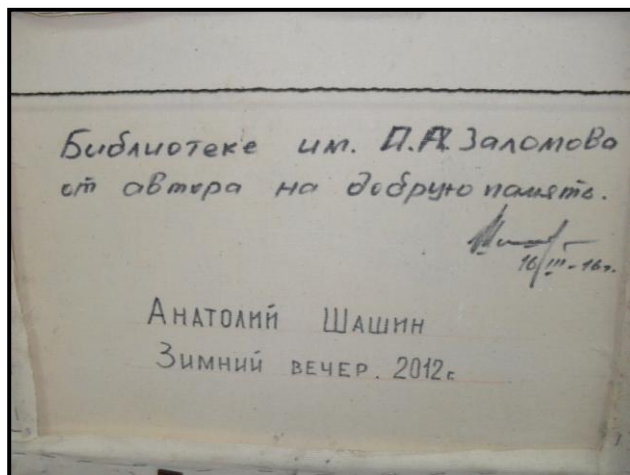 Библиотеке им. П.А. Заломова
от автора на добрую память.
16/III-16г.
Анатолий Шашин
Зимний вечер. 2012г